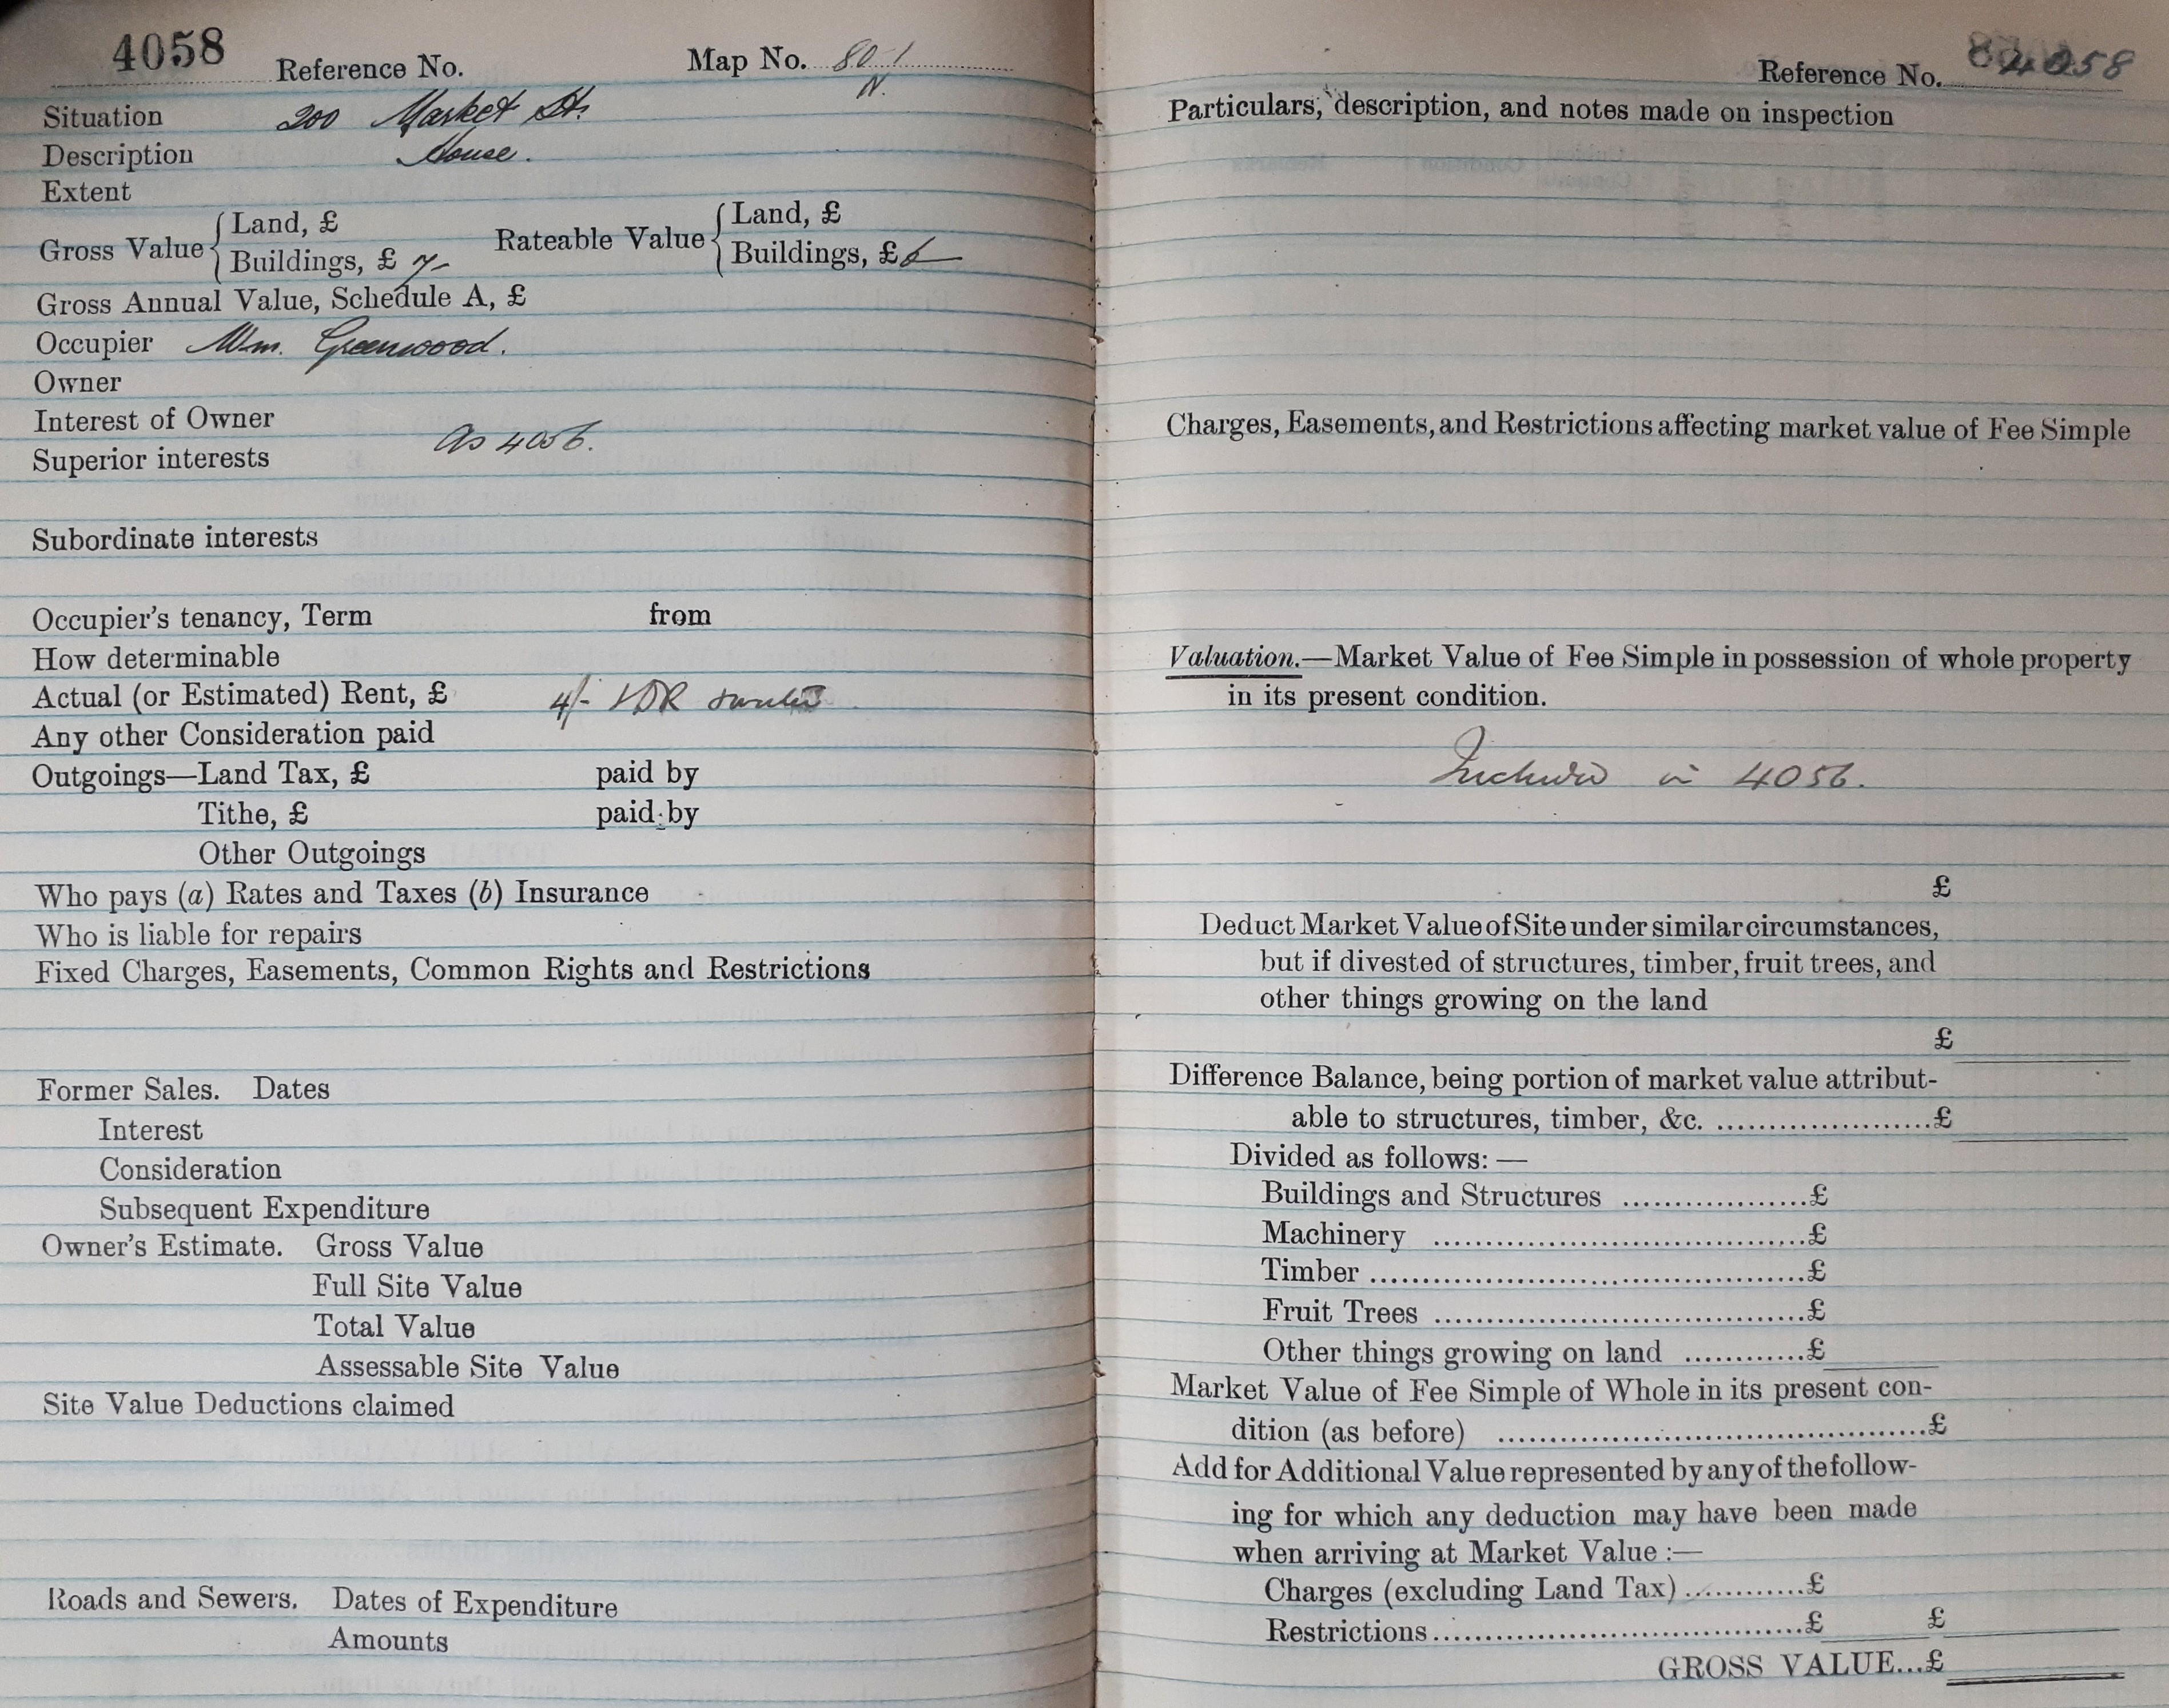 4058 Reference No. Map No. 80/1
N.
Situation 200 Market St.
Description House.
Extent
Gross Value { Land, £ Rateable Value { Land, £
Buildings, £ 7- Buildings, £ 6
Gross Annual Value, Schedule A, £
Occupier Wm. Greenwood.
Owner
Interest of Owner
As 4056.
Superior interests
Subordinate interests
Occupier's tenancy, Term from
How determinable
Actual (or Estimated) Rent, £ 4/-
Any other Consideration paid
Outgoings—Land Tax, £ paid by
Tithe, £ paid by
Other Outgoings
Who pays (a) Rates and Taxes (b) Insurance
Who is liable for repairs
Fixed Charges, Easements, Common Rights and Restrictions
Former Sales. Dates
Interest
Consideration
Subsequent Expenditure
Owner's Estimate. Gross Value
Full Site Value
Total Value
Assessable Site Value
Site Value Deductions claimed
Roads and Sewers. Dates of Expenditure
Amounts
Reference No. 4058
Particulars, description, and notes made on inspection
Charges, Easements, and Restrictions affecting market value of Fee Simple
Valuation.—Market Value of Fee Simple in possession of whole property
in its present condition.
Included in 4056.
£
Deduct Market Value of Site under similar circumstances,
but if divested of structures, timber, fruit trees, and
other things growing on the land
£
Difference Balance, being portion of market value attribut-
able to structures, timber, &c. ......................£
Divided as follows:—
Buildings and Structures ..................£
Machinery .......................................£
Timber .............................................£
Fruit Trees .......................................£
Other things growing on land ............£
Market Value of Fee Simple of Whole in its present con-
dition (as before) ............................................£
Add for Additional Value represented by any of the follow-
ing for which any deduction may have been made
when arriving at Market Value :—
Charges (excluding Land Tax) ............£
Restrictions.......................................£ £
GROSS VALUE...£